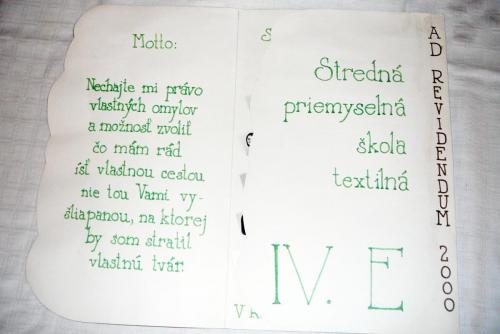 Motto:
Nechajte mi právo
vlastných omylov
a možnosť zvoliť
čo mám rád
ísť vlastnou cestou
nie tou Vami vy-
šliapanou, na ktorej
by som stratil
vlastnú tvár.
S
Stredná
priemyselná
škola
textilná
IV. E
V
AD REVIDENDUM 2000